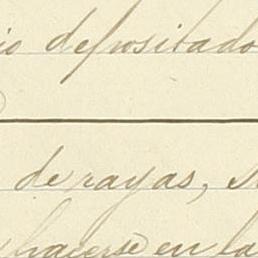 depositado
de rayas,
hacerse en la